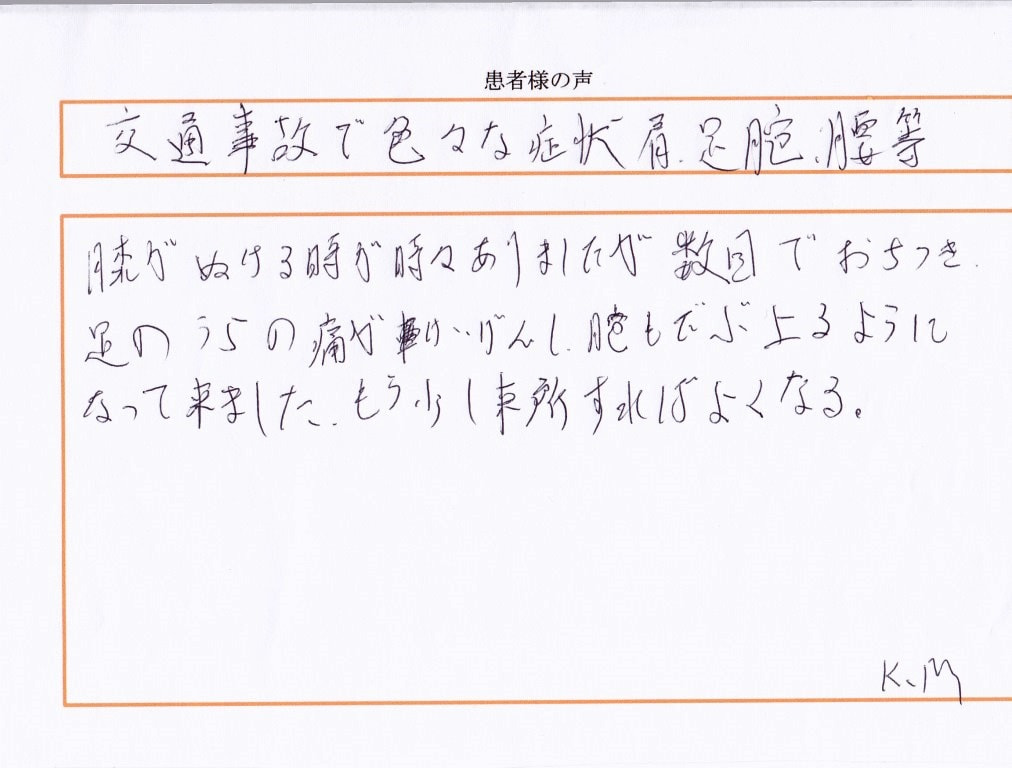 患者様の声
交通事故で色々な症状肩、足腕、腰等
膝がぬける時が時々ありましたが数回でおちつき、
足のうらの痛が軽けいげんし、腕もだいぶ上るように
なって来ました、もう少し来所すればよくなる。
K、M